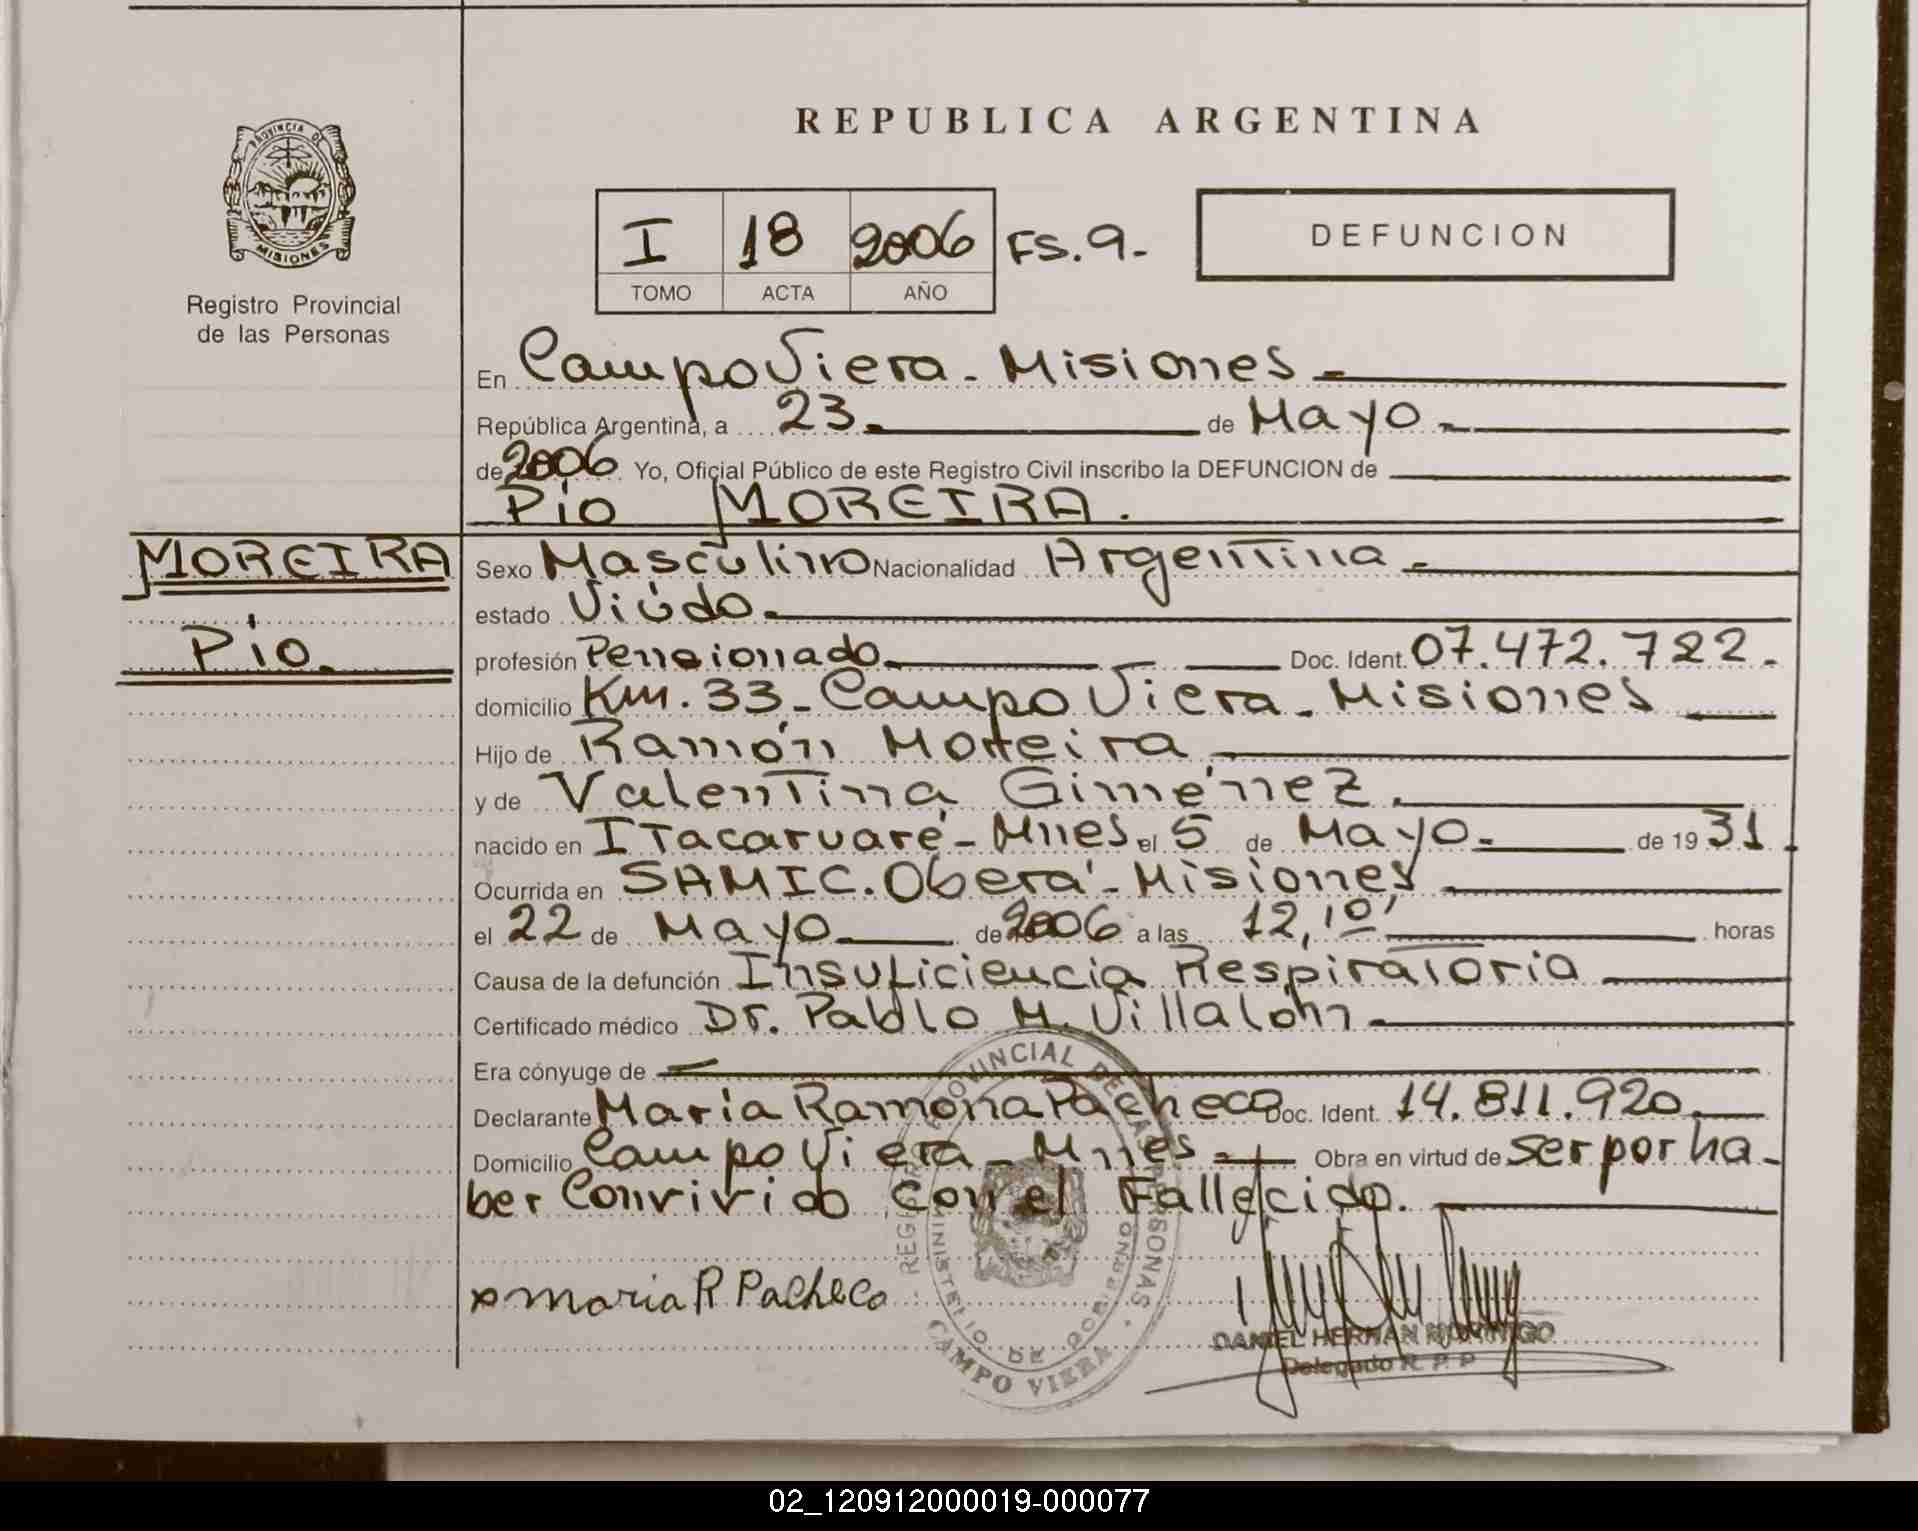 REPUBLICA ARGENTINA
PROVINCIA DE
MISIONES
Registro Provincial
de las Personas
I 18 2006 FS. 9.-
TOMO ACTA AÑO
DEFUNCION
En Campo Viera - Misiones -
República Argentina, a 23. de Mayo -
de 2006 Yo, Oficial Público de este Registro Civil inscribo la DEFUNCION de
Pío MOREIRA.
MOREIRA
Pío.
Sexo Masculino Nacionalidad Argentina -
estado Viúdo.
profesión Pensionado. Doc. Ident. 07.472.722.
domicilio Km. 33 - Campo Viera - Misiones
Hijo de Ramón Moreira
y de Valentina Giménez.
nacido en Itacaruaré - Mnes el 5 de Mayo - de 19 31.
Ocurrida en SAMIC. Oberá - Misiones
el 22 de Mayo de 2006 a las 12,10' horas
Causa de la defunción Insuficiencia Respiratoria
Certificado médico Dr. Pablo M. Villalón -
Era cónyuge de -
Declarante María Ramona Pacheco Doc. Ident. 14.811.920.
Domicilio Campo Viera - Mnes - Obra en virtud de ser por ha-
ber Convivido Con el Fallecido.
x maria R Pacheco
REGISTRO PROVINCIAL DE LAS PERSONAS
MINISTERIO DE GOBIERNO
CAMPO VIERA
DANIEL HERNAN
Delegado R. P. P.
02_120912000019-000077